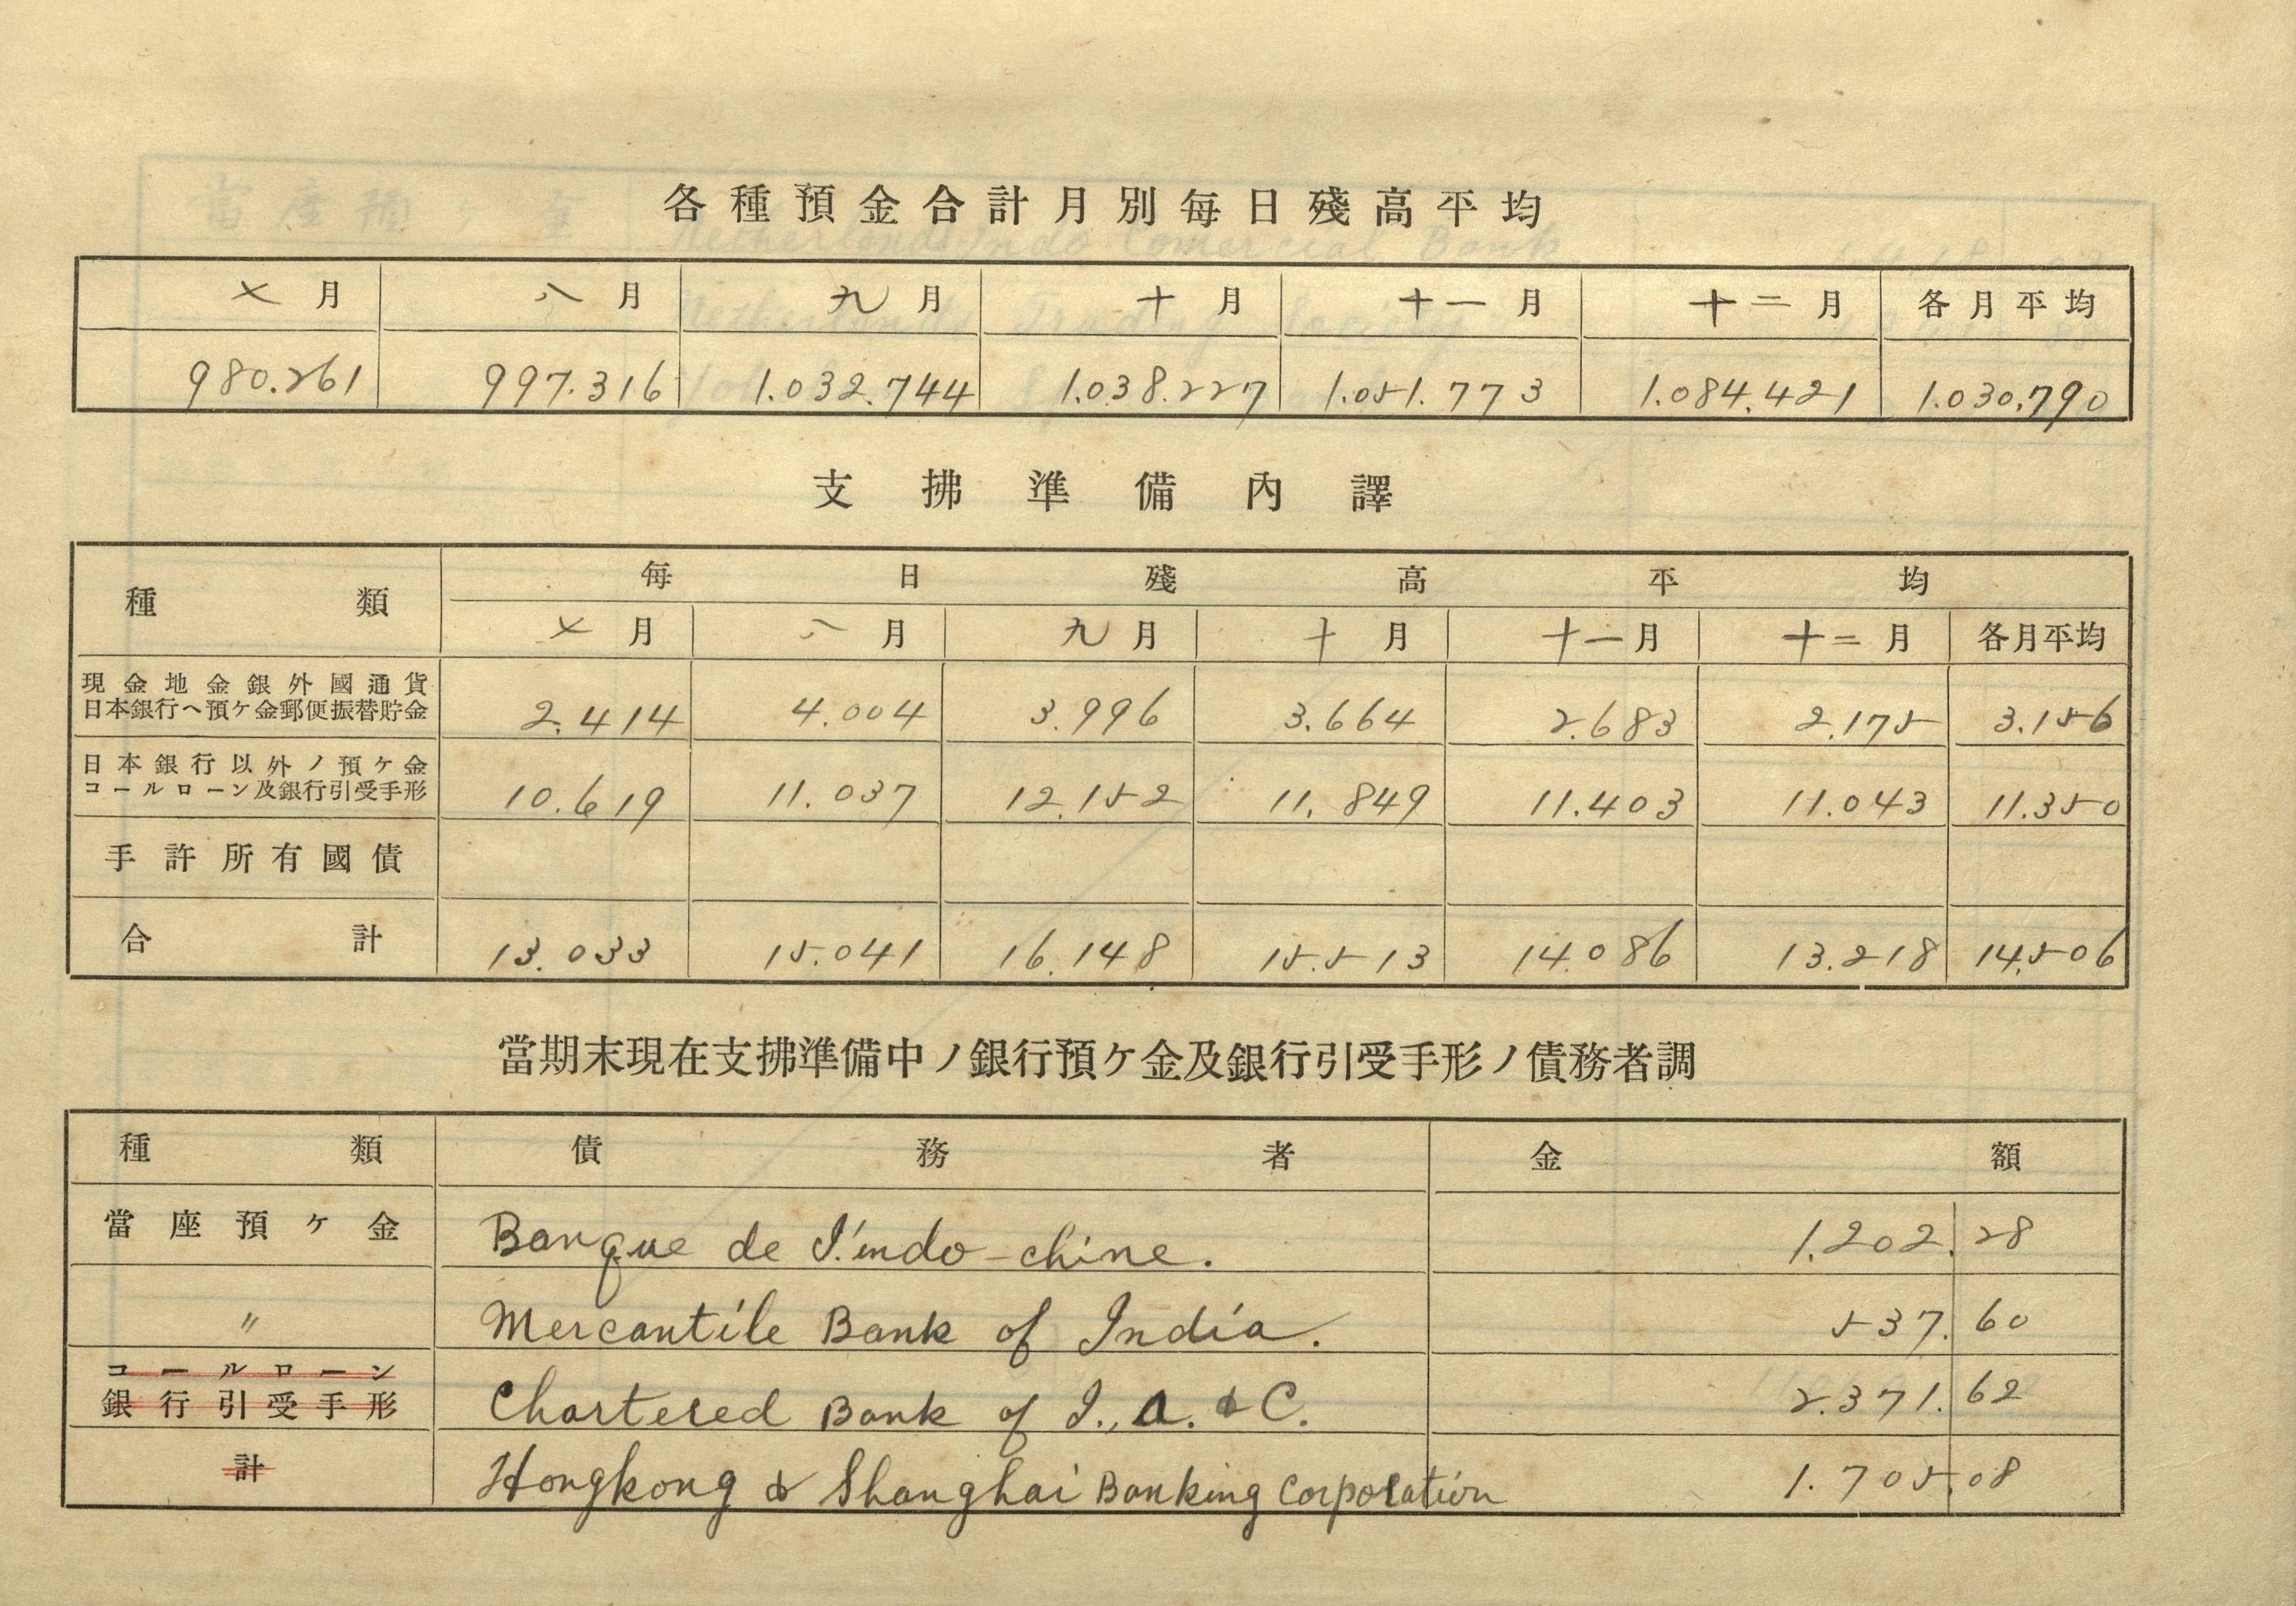 各種預金合計月別每日殘高平均
七月 八月 九月 十月 十一月 十二月 各月平均
980.261 997.316 1.032.744 1.038.227 1.051.773 1.084.421 1.030.790
支拂準備內譯
種類 每日殘高平均
七月 八月 九月 十月 十一月 十二月 各月平均
現金地金銀外國通貨
日本銀行ヘ預ケ金郵便振替貯金 2.414 4.004 3.996 3.664 2.683 2.175 3.156
日本銀行以外ノ預ケ金
コールローン及銀行引受手形 10.619 11.037 12.152 11.849 11.403 11.043 11.350
手許所有國債
合計 13.033 15.041 16.148 15.513 14.086 13.218 14.506
當期末現在支拂準備中ノ銀行預ケ金及銀行引受手形ノ債務者調
種類 債務者 金額
當座預ケ金 Banque de I'indo-chine. 1.202.28
〃 Mercantile Bank of India. 537.60
コールローン
銀行引受手形 Chartered Bank of I., A. & C. 2.371.62
計 Hongkong & Shanghai Banking Corporation 1.705.08